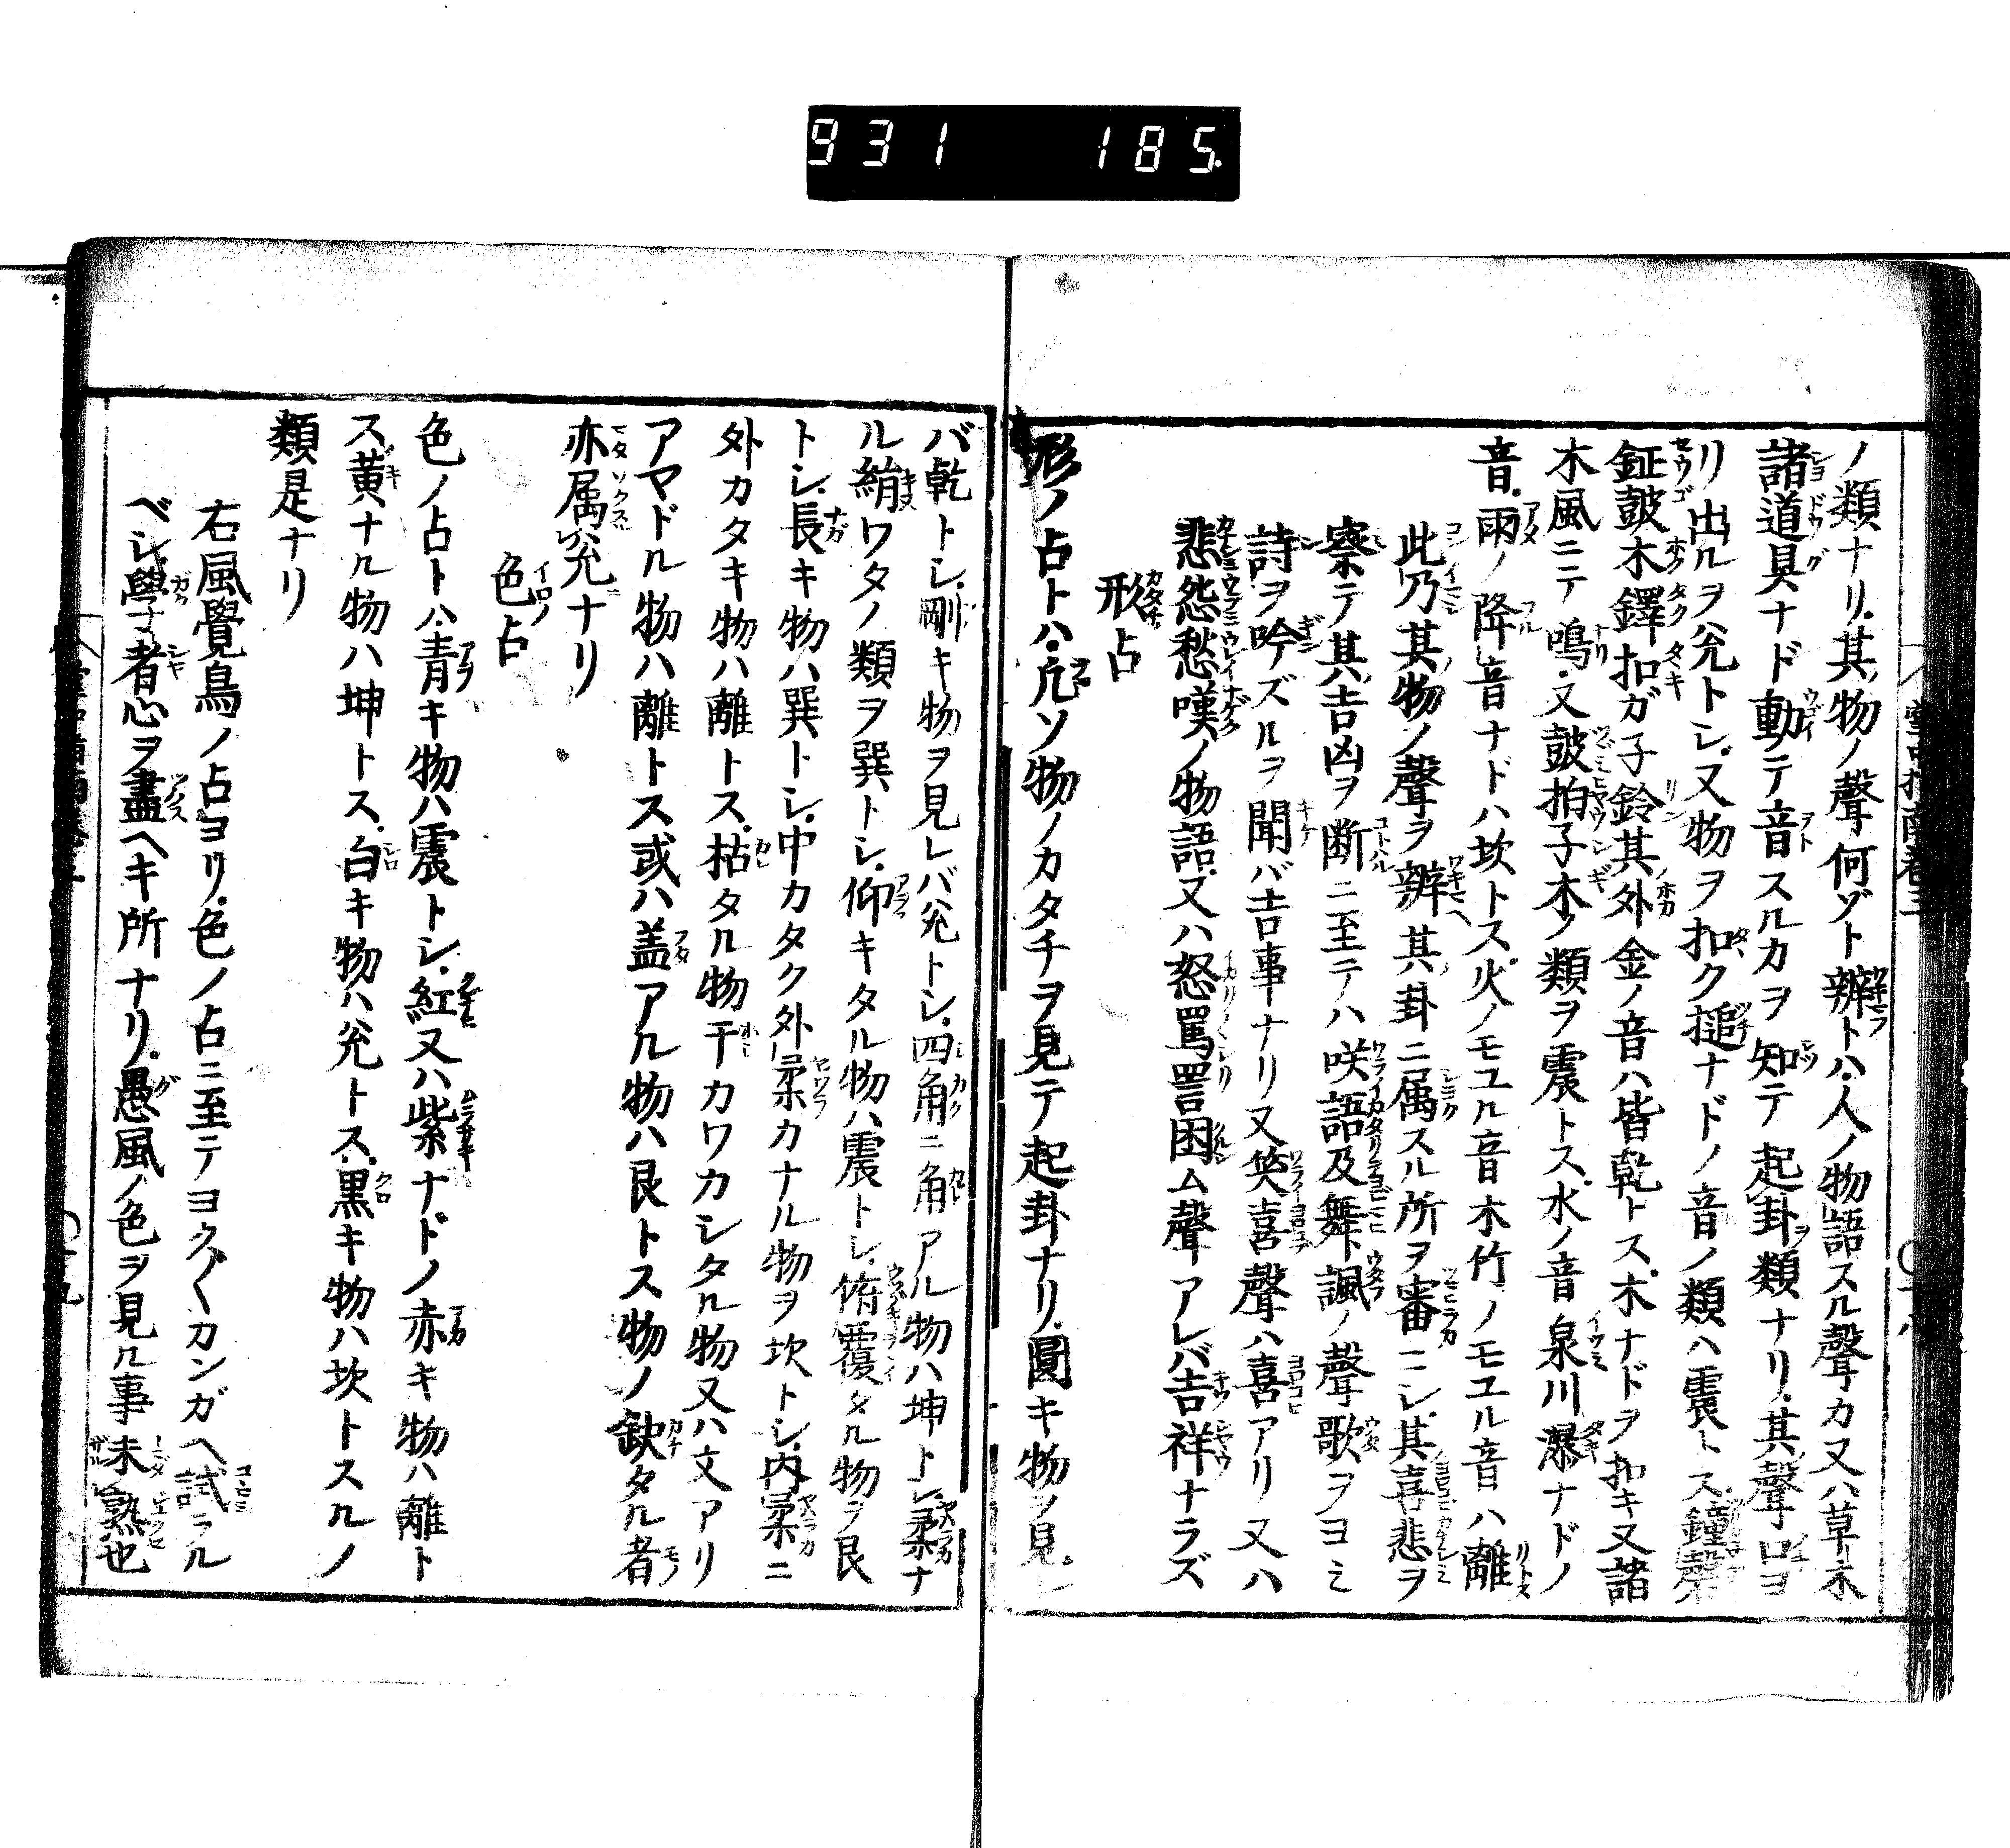 931 185
ノ類ナリ其物ノ聲何ゾト辨トハ人ノ物語スル聲カ又ハ草木
諸道具ナド動テ音スルカヲ知テ起卦類ナリ其聲口ヨ
リ出ルヲ兊トシ又物ヲ扣ク搥ナドノ音ノ類ハ震トス鐘磬
鉦鼓木鐸扣ガ子鈴其外金ノ音ハ皆乾トス木ナドヲ扣キ又諸
木風ニテ鳴又鼓拍子木ノ類ヲ震トス水ノ音泉川瀑ナドノ
音雨ノ降音ナドハ坎トス火ノモユル音木竹ノモユル音ハ離
此乃其物ノ聲ヲ辨其卦ニ属スル所ヲ審ニシ其喜悲ヲ
察テ其吉凶ヲ断ニ至テハ咲語及舞諷ノ聲歌ヲヨミ
詩ヲ吟ズルヲ聞バ吉事ナリ又笑喜聲ハ喜アリ又ハ
悲怨愁嘆ノ物語又ハ怒罵詈困ム聲アレバ吉祥ナラズ
形占
形ノ占トハ凢ソ物ノカタチヲ見テ起卦ナリ圓キ物ヲ見レ
バ乾トシ剛キ物ヲ見レバ兊トシ四角ニ角アル物ハ坤トシ柔ナ
ル絹ワタノ類ヲ巽トシ仰キタル物ハ震トシ俯覆タル物ヲ艮
トシ長キ物ハ巽トシ中カタク外柔カナル物ヲ坎トシ内柔ニ
外カタキ物ハ離トス枯タル物干カワカシタル物又ハ文アリ
アマドル物ハ離トス或ハ盖アル物ハ艮トス物ノ缺タル者
亦属兊ナリ
色占
色ノ占トハ青キ物ハ震トシ紅又ハ紫ナドノ赤キ物ハ離ト
ス黄ナル物ハ坤トス白キ物ハ兊トス黒キ物ハ坎トスルノ
類是ナリ
右風覺鳥ノ占ヨリ色ノ占ニ至テヨク〱カンガヘ試ラル
ベシ學者心ヲ盡ヘキ所ナリ愚風ノ色ヲ見ル事未熟也